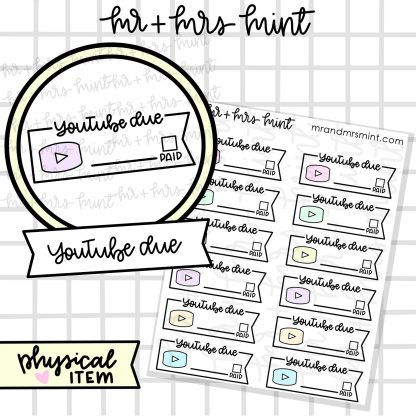 mr + mrs mint
Youtube due
PAID
Youtube due
physical
ITEM
mr + mrs mint
mrandmrsmint.com
Youtube due
PAID
Youtube due
PAID
Youtube due
PAID
Youtube due
PAID
Youtube due
PAID
Youtube due
PAID
Youtube due
PAID
Youtube due
PAID
Youtube due
PAID
Youtube due
PAID
Youtube due
PAID
Youtube due
PAID